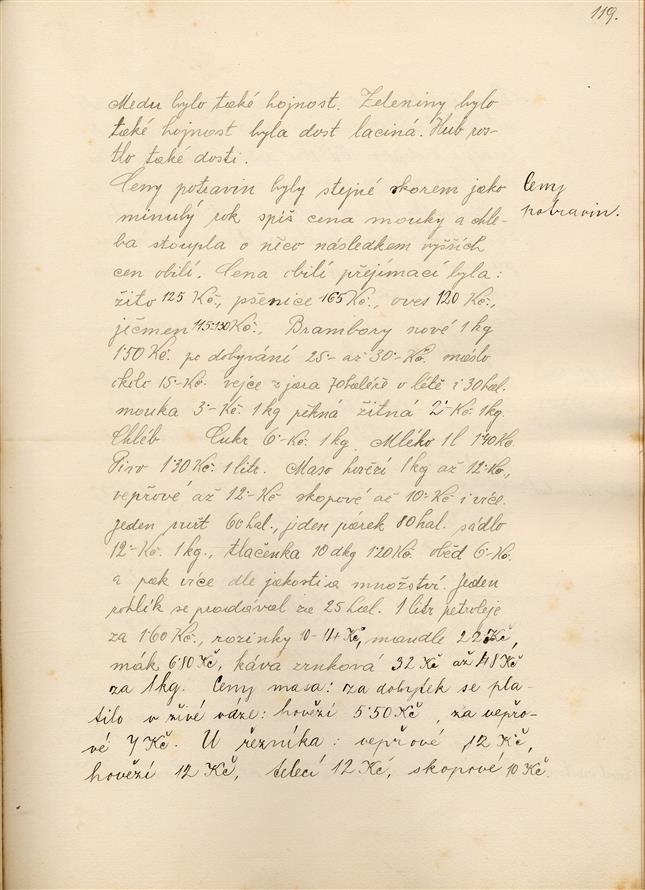 119.
Medu bylo také hojnost. Zeleniny bylo
také hojnost byla dost laciná. Hub ros-
tlo také dosti.
Ceny potravin byly stejné skorem jako
Ceny
minulý rok spíš cena mouky a chle-
potravin.
ba stoupla o něco následkem vyšších
cen obilí. Cena obilí přejímací byla:
žito 125 Kč., pšenice 165 Kč., oves 120 Kč.,
ječmen 115-130 Kč., Brambory nové 1 kg
1·50 Kč. po dobývání 25·- až 30·- Kč. máslo
okolo 15·- Kč. vejce z jara 70 haléřů v létě i 30 hal.
mouka 3·- Kč. 1 kg pěkná žitná 2·- Kč. 1 kg.
Chléb Cukr 6·- Kč. 1 kg. Mléko 1 l 1·40 Kč.
Pivo 1·30 Kč. 1 litr. Maso hovězí 1 kg až 12·- Kč.,
vepřové až 12·- Kč skopové až 10·- Kč i více.
Jeden vuřt 60 hal., jeden párek 80 hal. sádlo
12·- Kč. 1 kg., tlačenka 10 dkg 1·20 Kč. oběd 6·- Kč.
a pak více dle jakosti a množství. Jeden
rohlík se prodával za 25 hal. 1 litr petroleje
za 1·60 Kč., rozinky 10-14 Kč, mandle 22 Kč,
mák 6·80 Kč, káva zrnková 32 Kč až 48 Kč
za 1 kg. Ceny masa: za dobytek se pla-
tilo v živé váze: hovězí 5·50 Kč, za vepřo-
vé 7 Kč. U řezníka: vepřové 12 Kč,
hovězí 12 Kč, telecí 12 Kč, skopové 10 Kč.